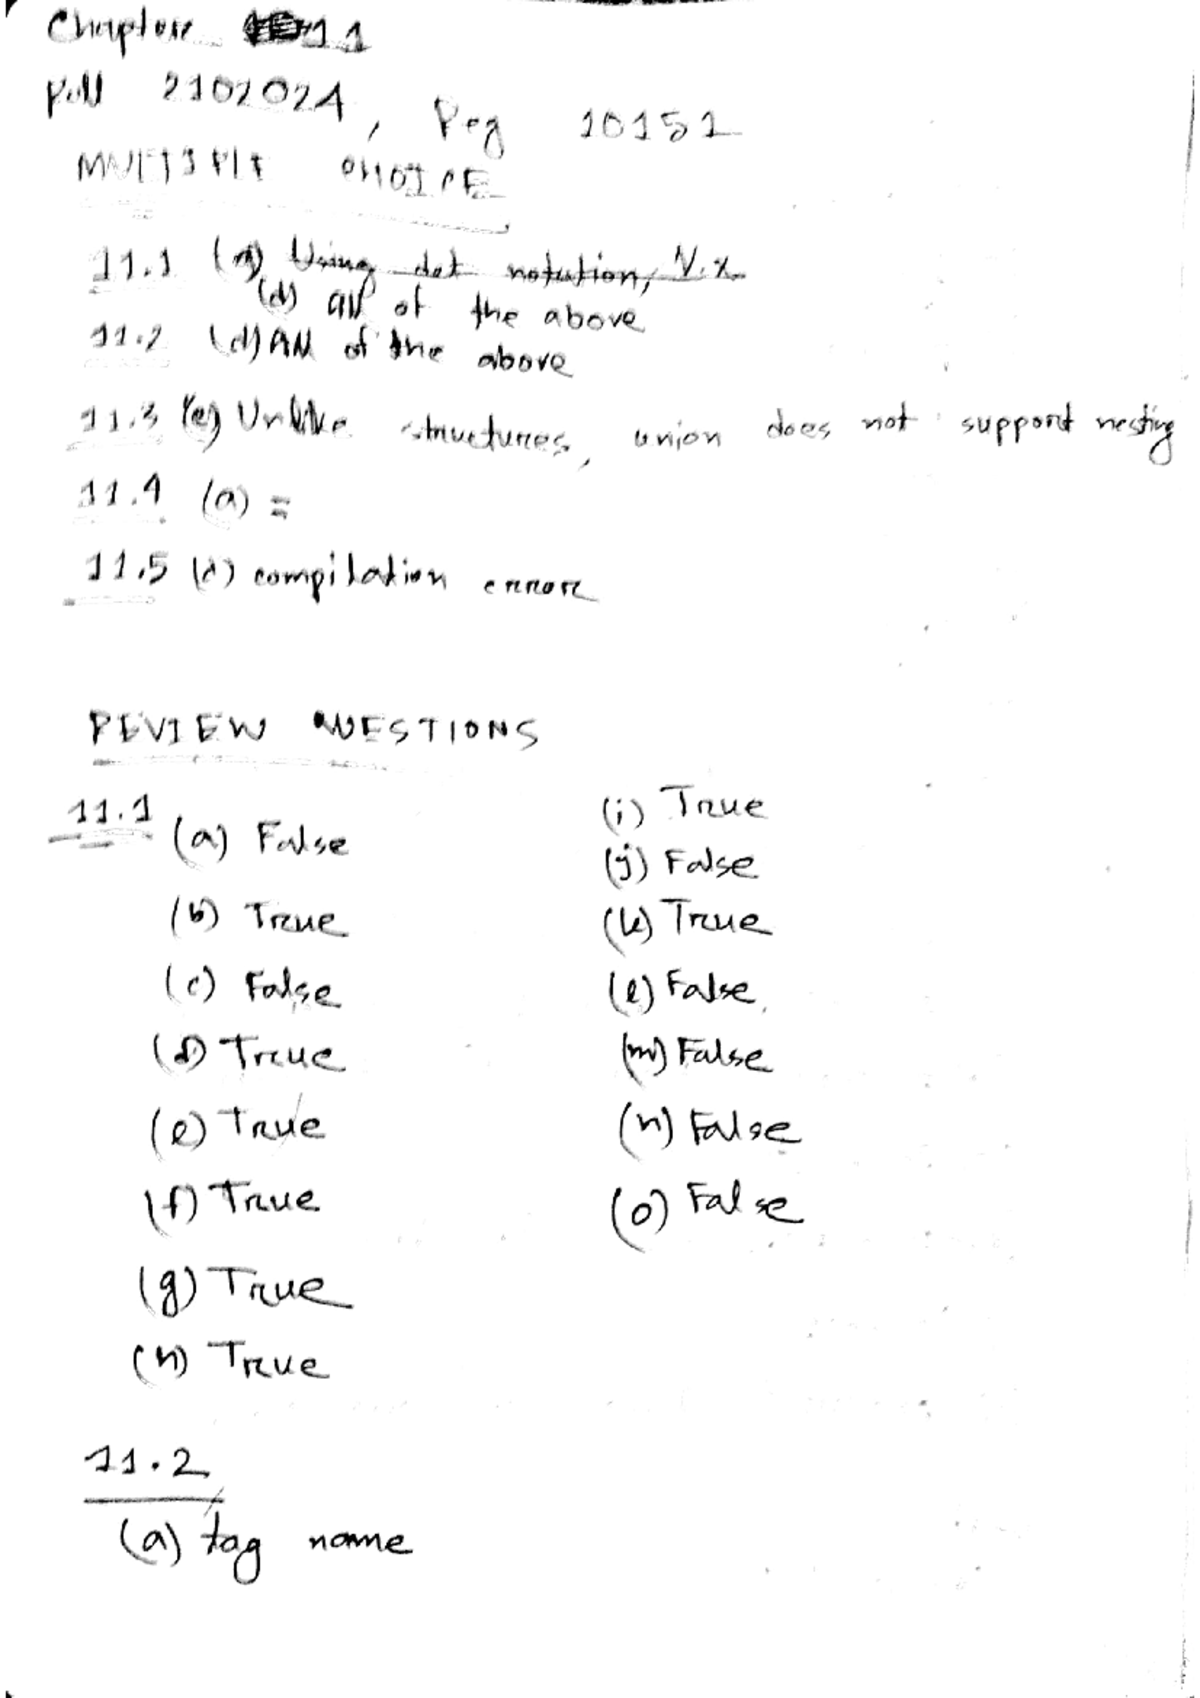 Chapter 11
Roll 2102024, Reg 10151
MULTIPLE CHOICE
11.1 (a) Using dot notation, V.x
(d) all of the above
11.2 (d) All of the above
11.3 (c) Unlike structures, union does not support nesting
11.4 (a) =
11.5 (d) compilation error
REVIEW QUESTIONS
11.1
(a) False
(b) True
(c) False
(d) True
(e) True
(f) True
(g) True
(h) True
(i) True
(j) False
(k) True
(l) False
(m) False
(n) False
(o) False
11.2
(a) tag name